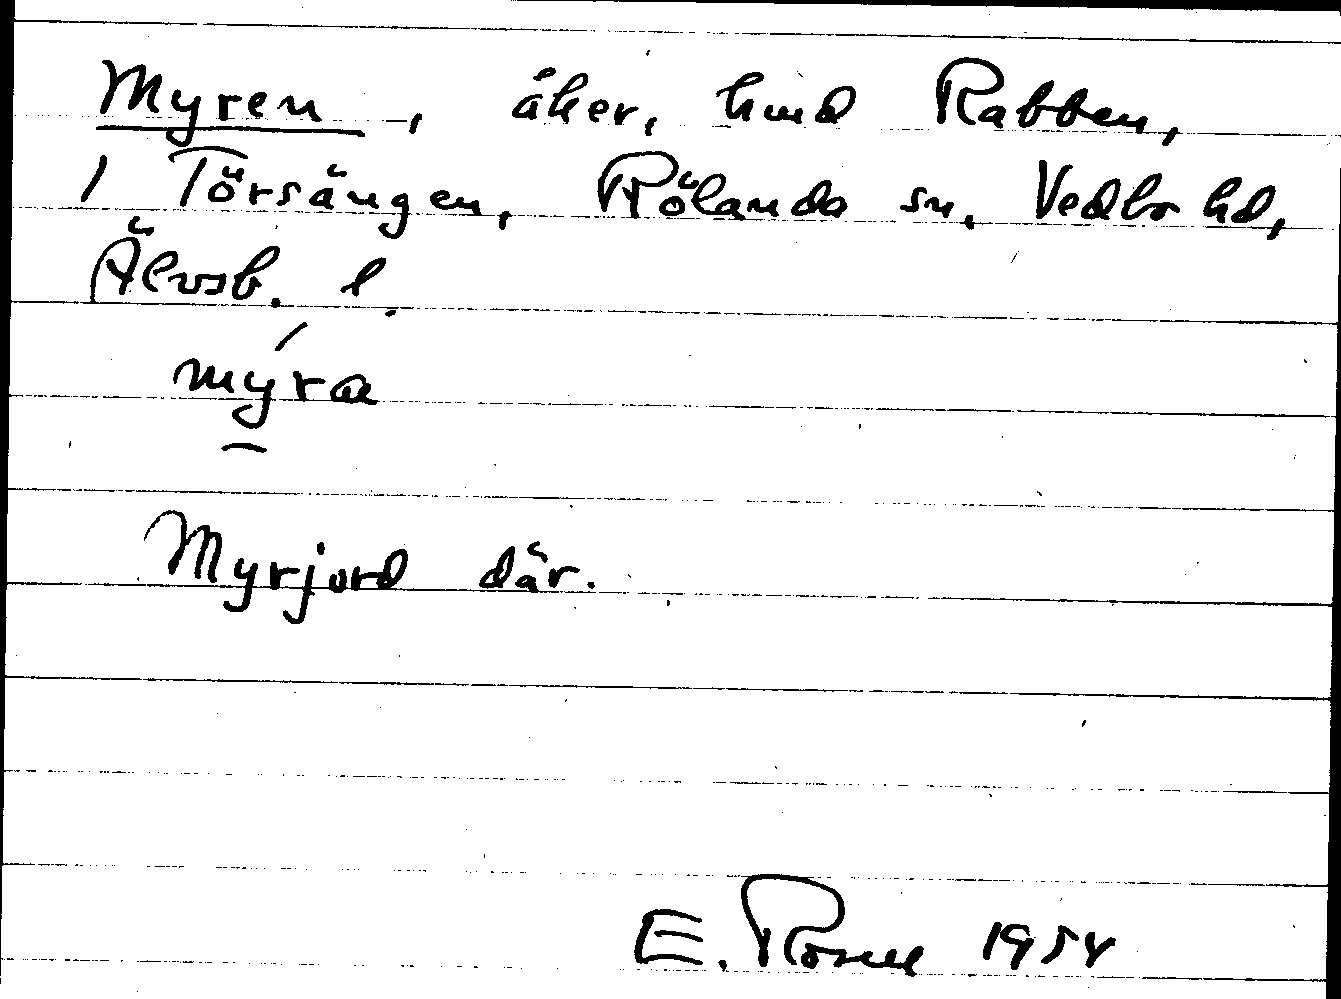 Myren, åker, hmd Rabben,
1 Törsängen, Rölanda sn, Vedbo hd,
Älvsb. l.
mýra
Myrjord där.
E. Rosell 1954